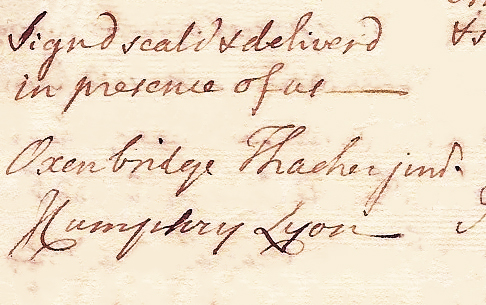 Signd seald & deliverd
in presence of us
Oxenbridge Thacher junr.
Humphry Lyon